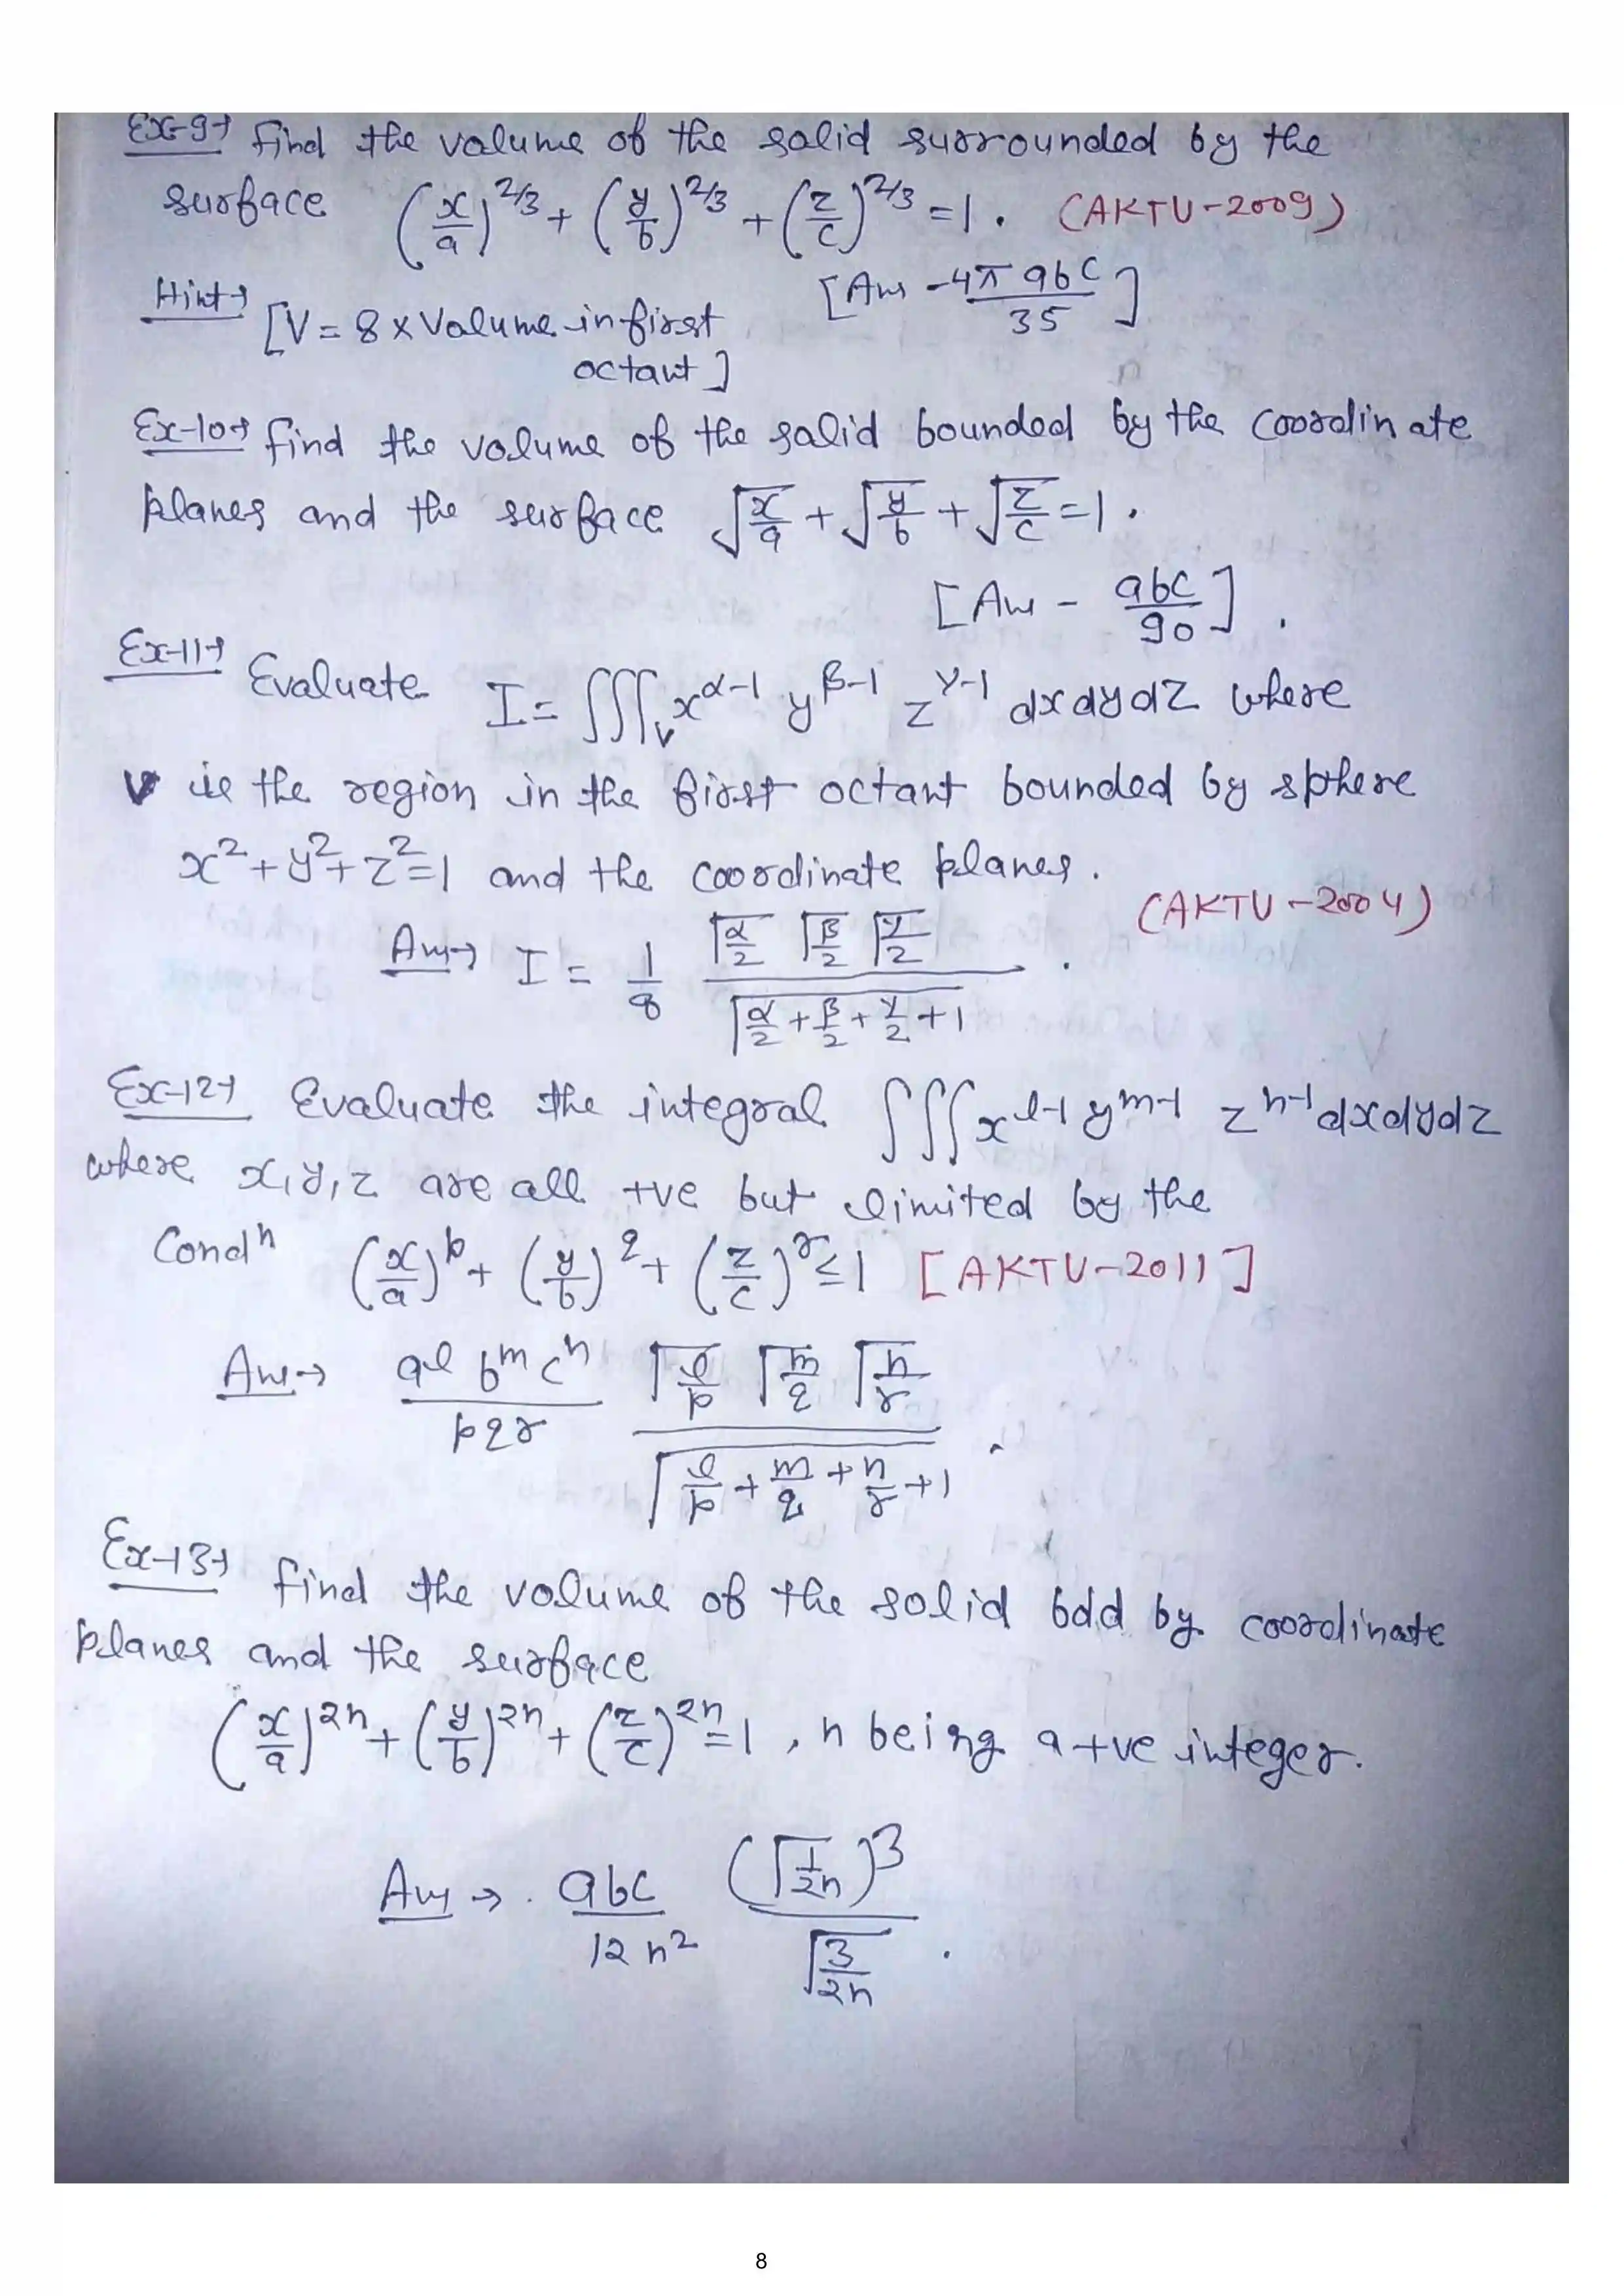 Ex-9→ find the volume of the solid surrounded by the
surface (x/a)^2/3 + (y/b)^2/3 + (z/c)^2/3 = 1. (AKTU-2009)
Hint→ [V = 8 × Volume in first octant] [Ans - 4π abc / 35]
Ex-10→ find the volume of the solid bounded by the coordinate
planes and the surface √(x/a) + √(y/b) + √(z/c) = 1.
[Ans - abc/90].
Ex-11→ Evaluate I = ∭_V x^α-1 y^β-1 z^γ-1 dx dy dz where
V is the region in the first octant bounded by sphere
x² + y² + z² = 1 and the coordinate planes.
(AKTU-2004)
Ans→ I = 1/8 Γ(α/2) Γ(β/2) Γ(γ/2) / Γ(α/2 + β/2 + γ/2 + 1).
Ex-12→ Evaluate the integral ∭ x^l-1 y^m-1 z^n-1 dx dy dz
where x, y, z are all +ve but limited by the
Condⁿ (x/a)^p + (y/b)^q + (z/c)^r ≤ 1 [AKTU-2011]
Ans→ a^l b^m c^n / pqr Γ(l/p) Γ(m/q) Γ(n/r) / Γ(l/p + m/q + n/r + 1).
Ex-13→ find the volume of the solid bdd by coordinate
planes and the surface
(x/a)^2n + (y/b)^2n + (z/c)^2n = 1, n being a +ve integer.
Ans→. abc / 12n² (Γ(1/2n))³ / Γ(3/2n).
8